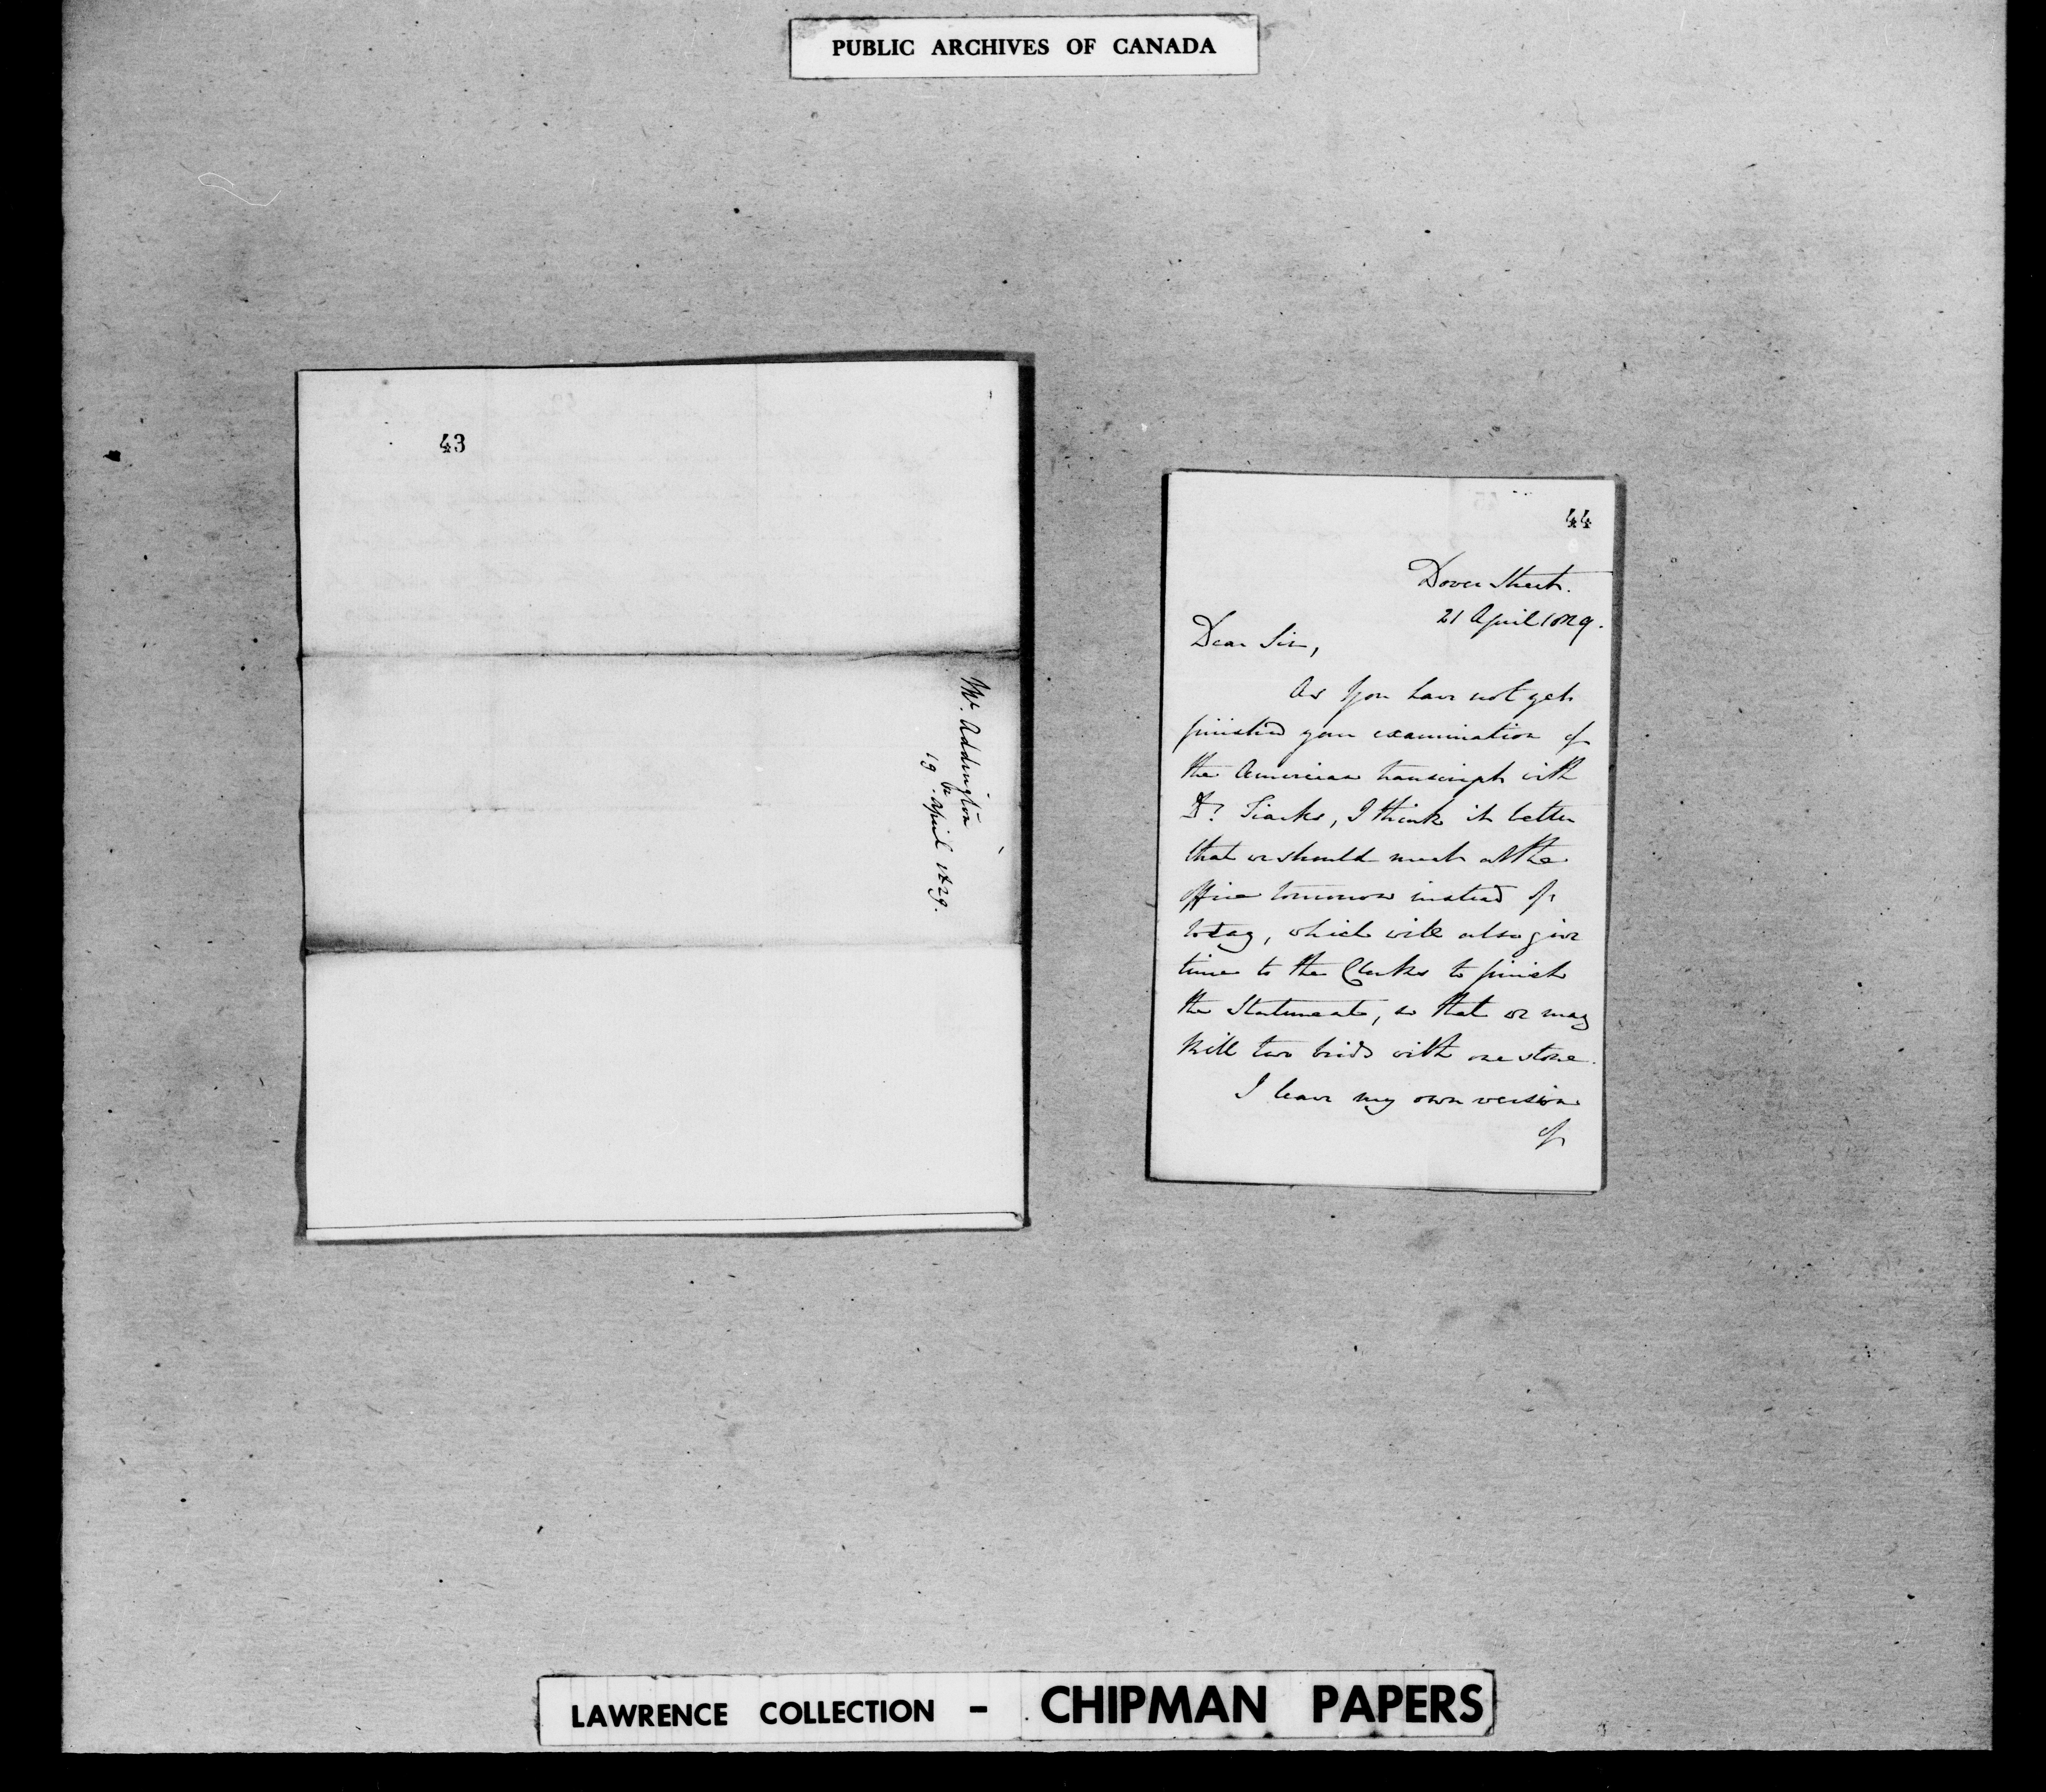 PUBLIC ARCHIVES OF CANADA
43
Mr. Addington
19. April 1829.
44
Dover Street.
21 April 1829.
Dear Sir,
As you have not yet
finished your examination of
the American transcript with
Dr. Tiarks, I think it better
that we should meet at the
office tomorrow instead of
today, which will also give
time to the Clerks to finish
the Statements, so that we may
kill two birds with one stone.
I leave my own version
of
LAWRENCE COLLECTION - CHIPMAN PAPERS